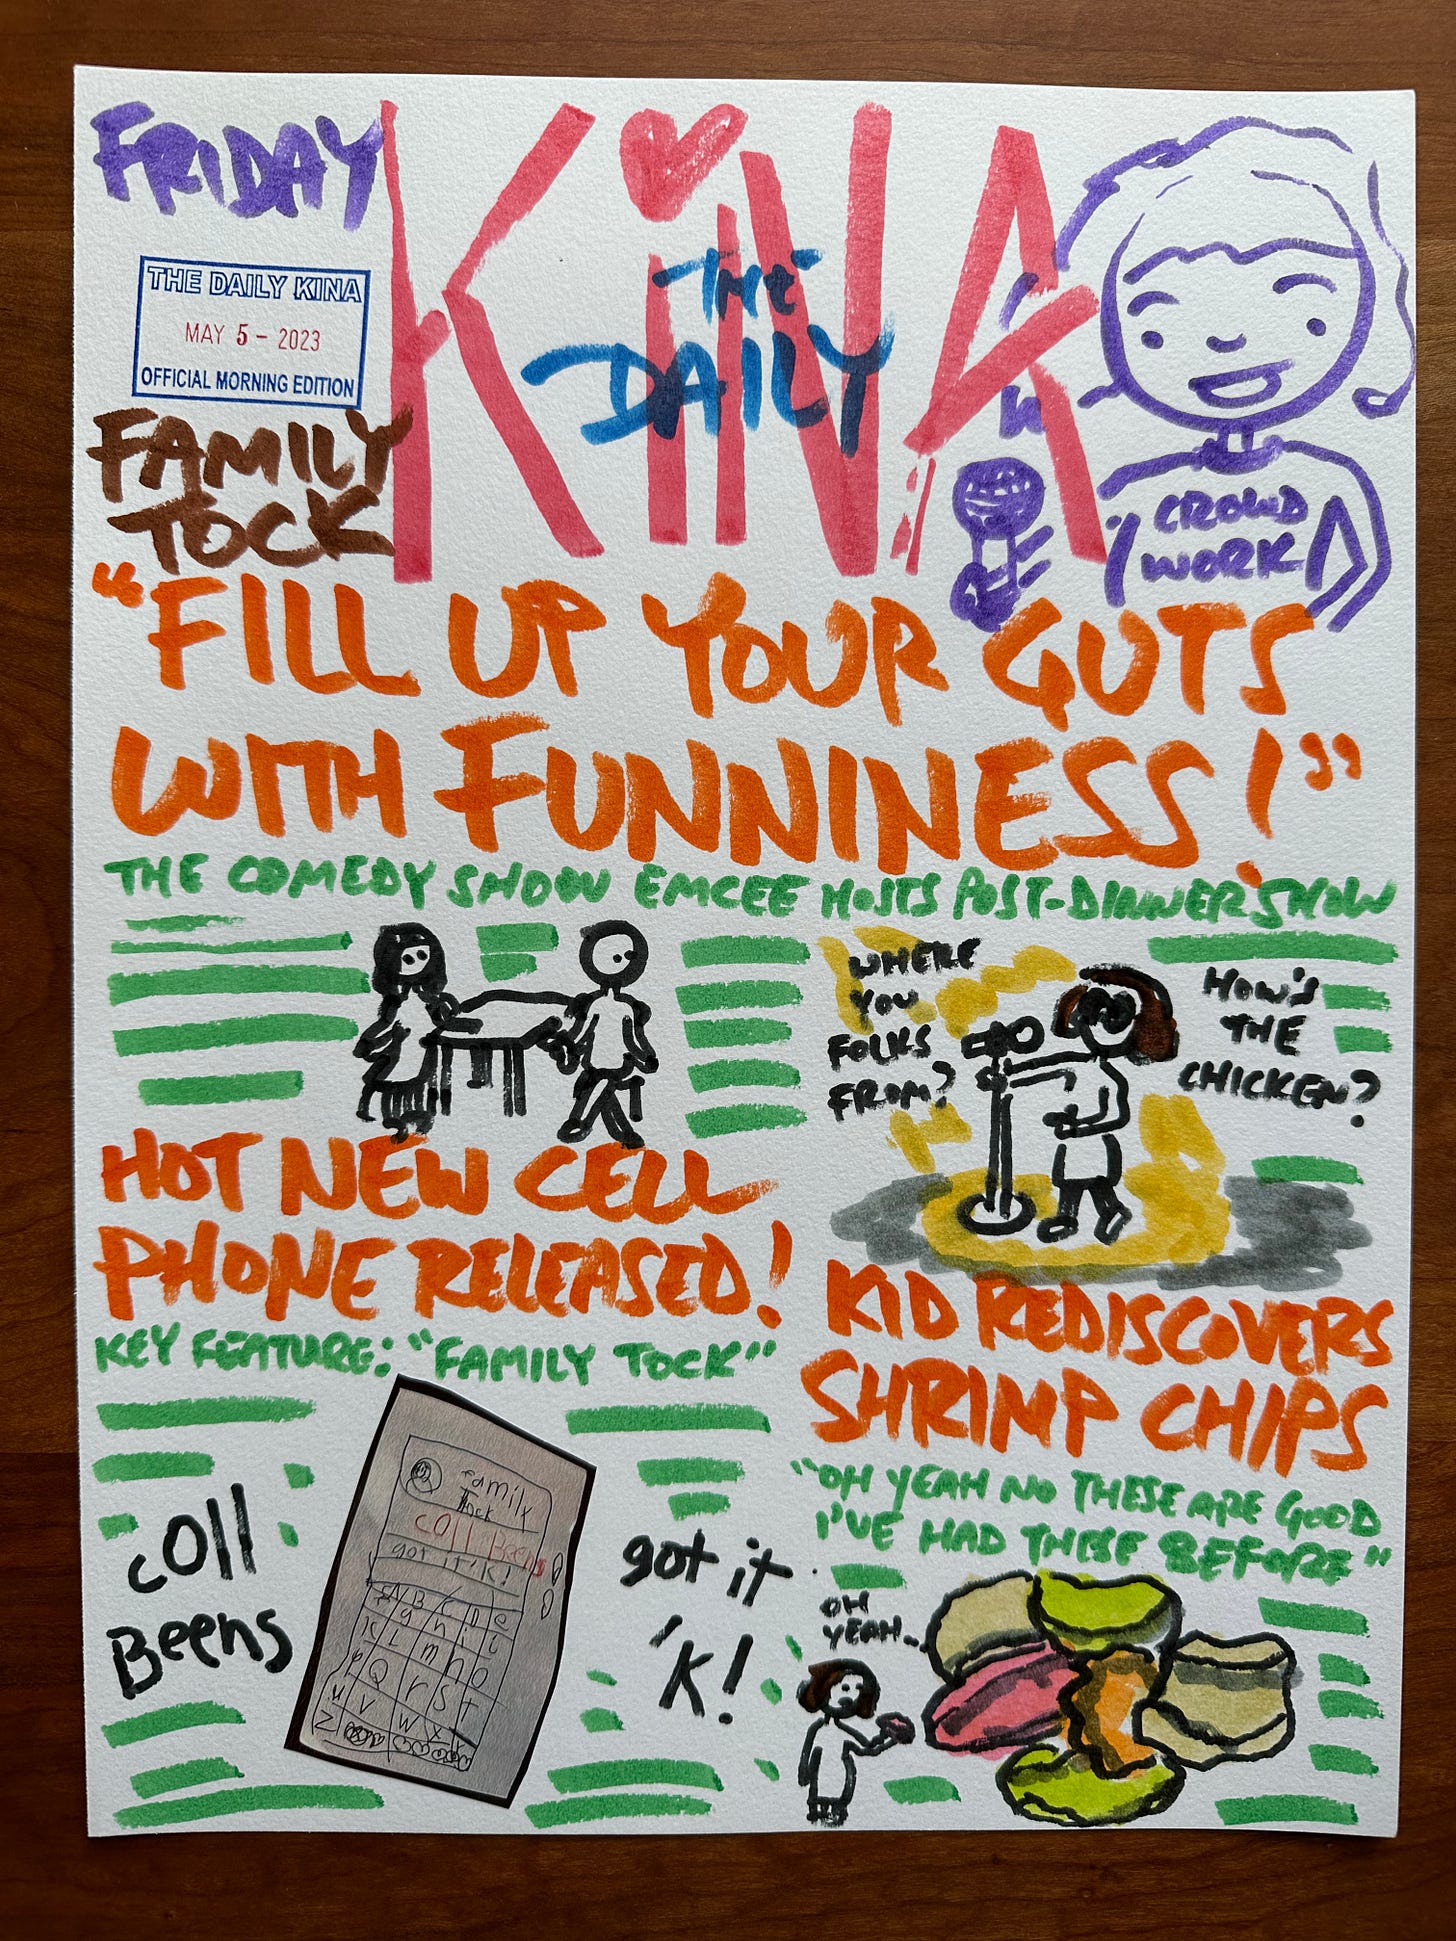 FRIDAY
KiNA
THE
DAILY
THE DAILY KINA
MAY 5 - 2023
OFFICIAL MORNING EDITION
FAMILY
TOCK
CROWD
WORK
"FILL UP YOUR GUTS
WITH FUNNINESS!"
THE COMEDY SHOW EMCEE HOSTS POST-DINNER SHOW
WHERE
YOU
FOLKS
FROM?
HOW'S
THE
CHICKEN?
HOT NEW CELL
PHONE RELEASED!
KEY FEATURE: "FAMILY TOCK"
coll
Beens
family
Tock
coll Beens
got it 'k!
got it
'k!
KID REDISCOVERS
SHRIMP CHIPS
"OH YEAH NO THESE ARE GOOD
I'VE HAD THESE BEFORE"
OH
YEAH...